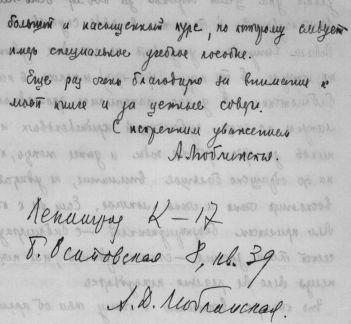 большой и насыщенный курс, по которому следует
иметь специальное учебное пособие.
Еще раз очень благодарю за внимание к
моей книге и за ценные советы.
С искренним уважением
А. Люблинская.
Ленинград К-17
Б. Осиповская 8, кв. 39
А. Д. Люблинская.